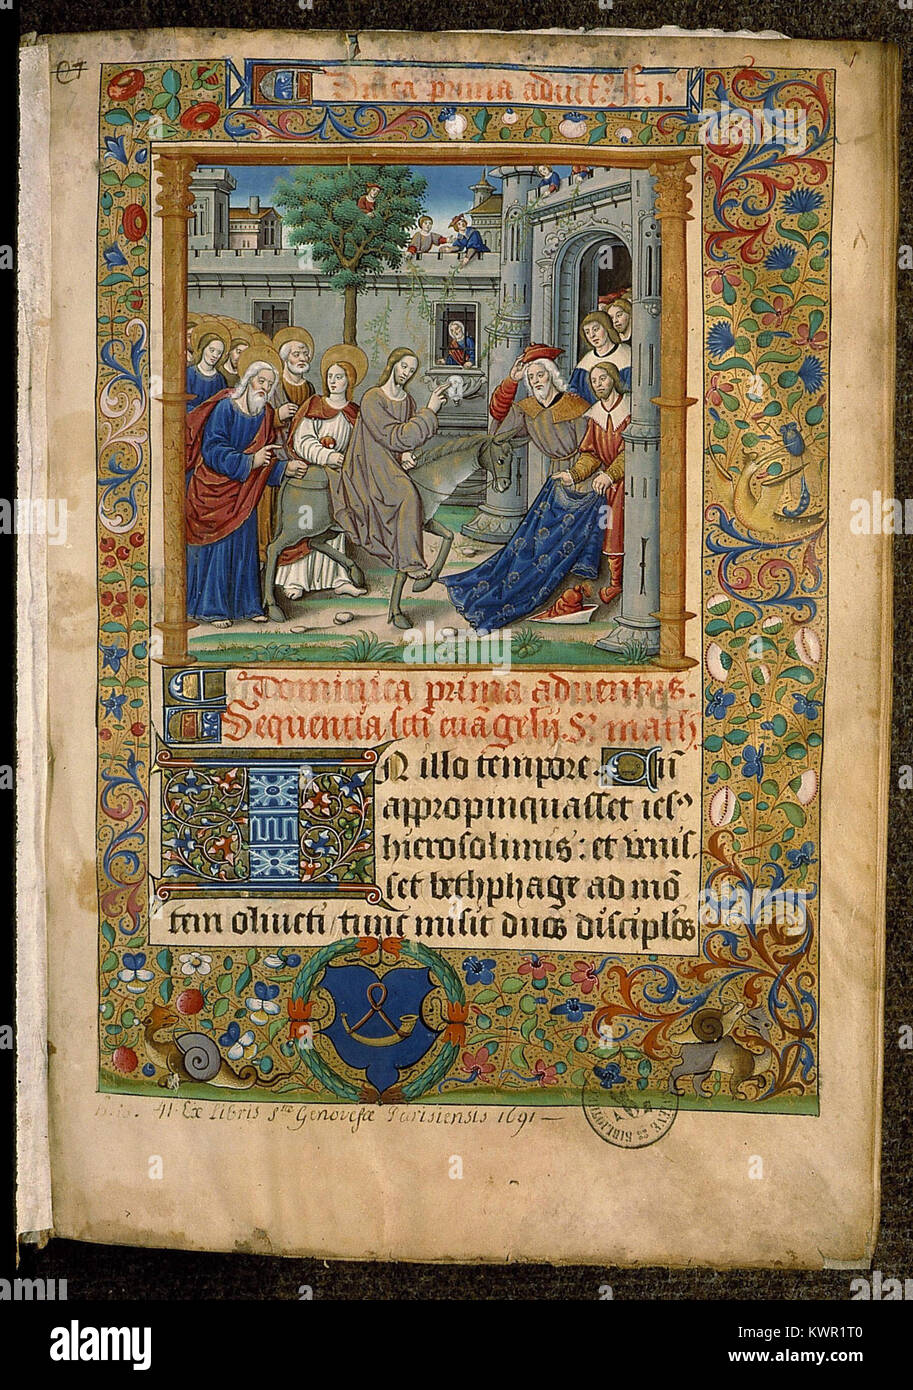 Dn̄ica prima aduēt: ff. 1.
Dominica prima aduentus.
Sequentia scti euāgelij. S. math
IN illo tempore. Cū
appropinquasset iesꝰ
hierosolimis: et venis-
set bethphage ad mō
tem oliueti / tunc misit duos discipl̄os
41. Ex Libris Stæ Genovefæ Parisiensis 1691
alamy stock photo
KWR1T0
www.alamy.com